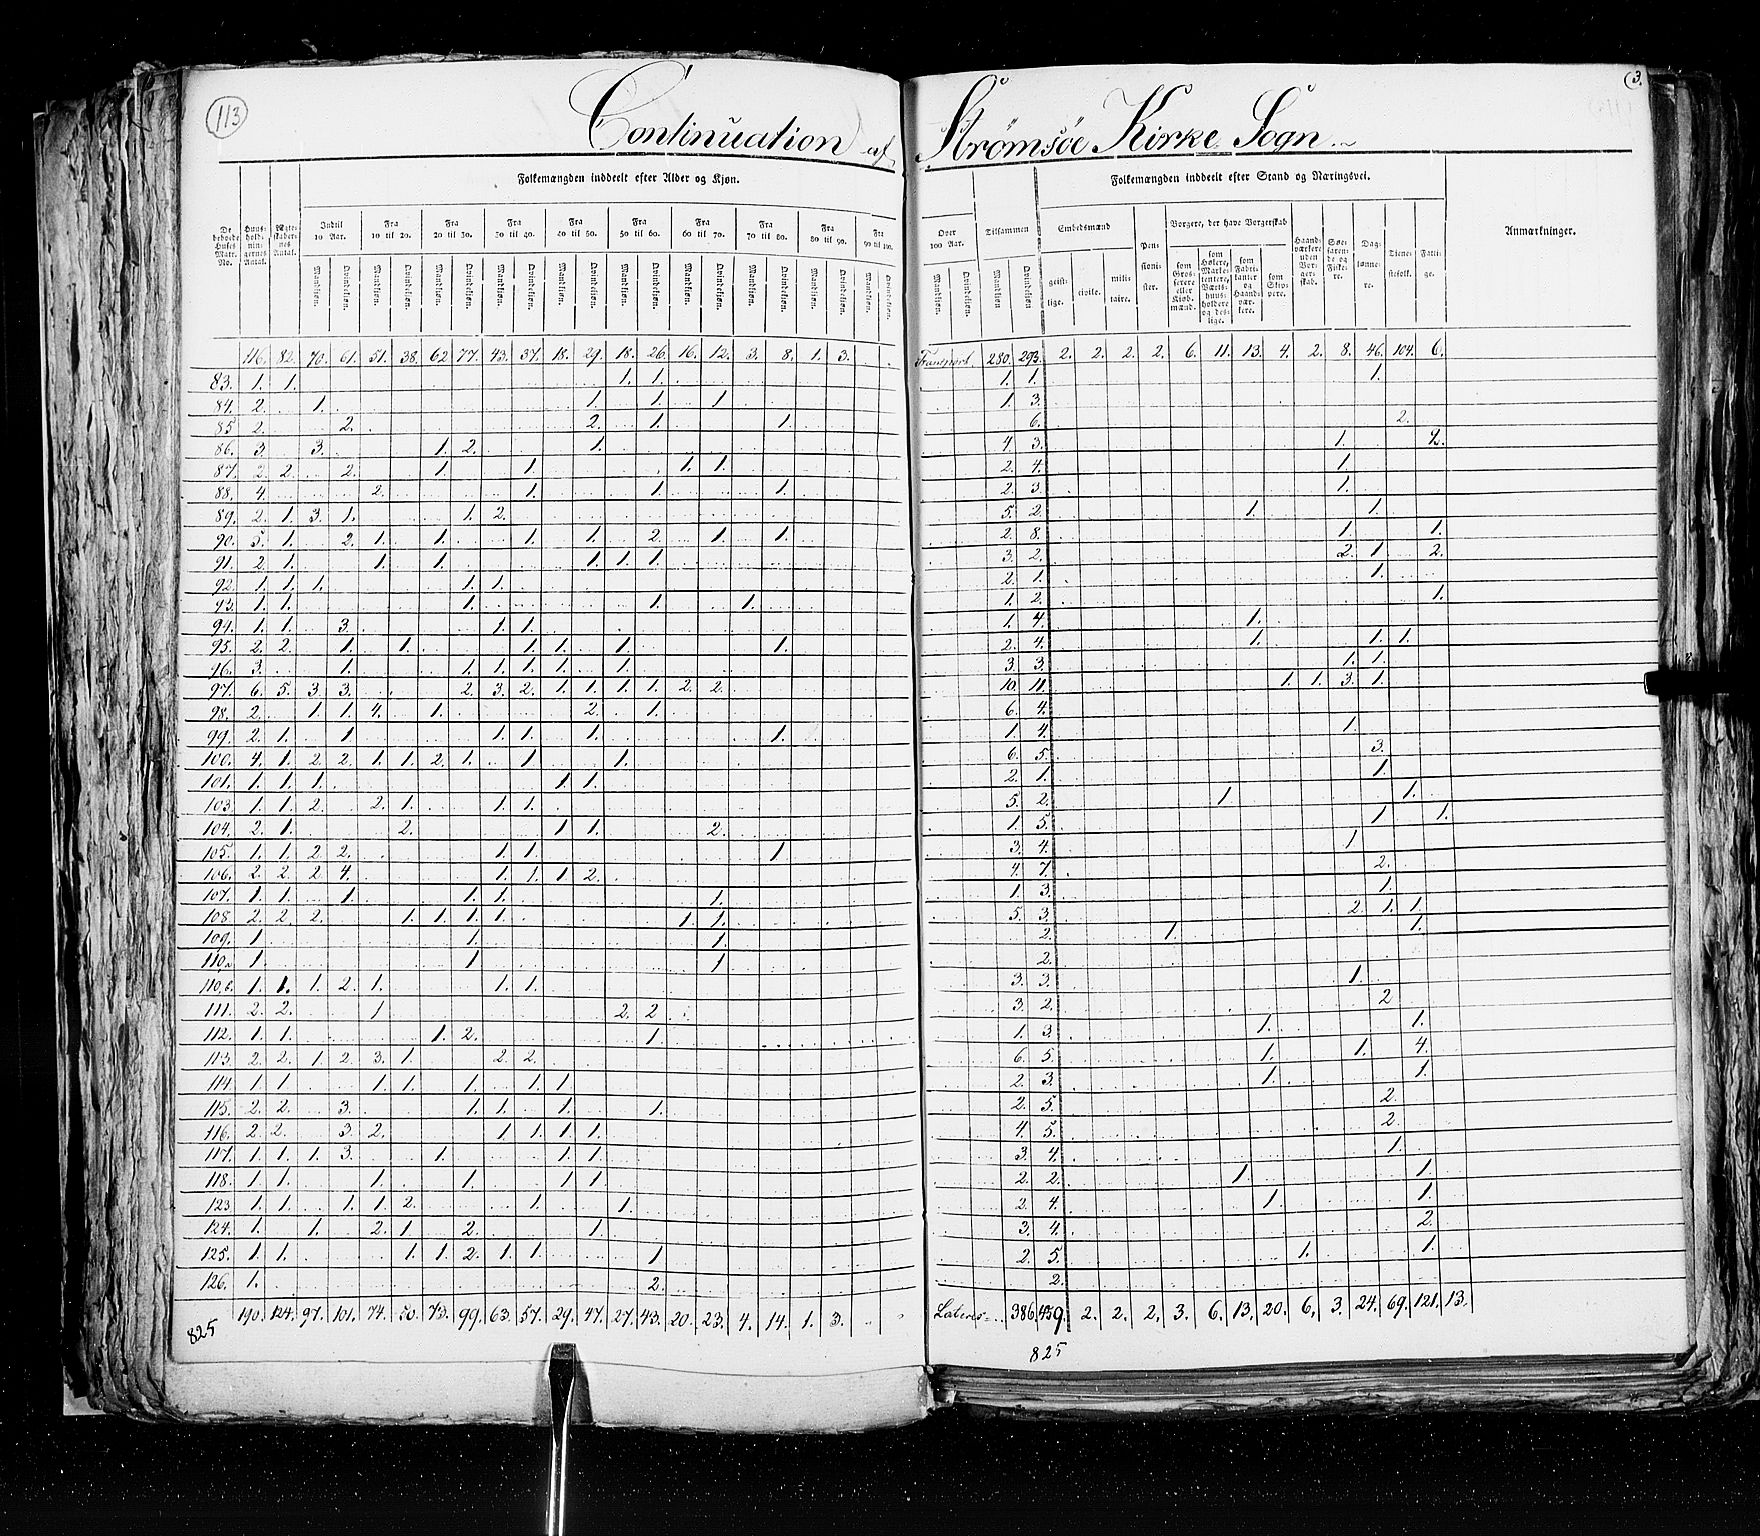 113
3.
Continuation af Strømsøe Kirke Sogn
Folkemængden inddeelt efter Alder og Kjøn.
Folkemængden inddeelt efter Stand og Næringsvei.
De beboede Huses Matr. No.
Huus-holdningernes Antal.
Ægteskabernes Antal.
Indtil 10 Aar.
Fra 10 til 20.
Fra 20 til 30.
Fra 30 til 40.
Fra 40 til 50.
Fra 50 til 60.
Fra 60 til 70.
Fra 70 til 80.
Fra 80 til 90.
Fra 90 til 100.
Over 100 Aar.
Tilsammen
Embedsmænd
geistlige.
civile.
militaire.
Pensionister.
Borgere, der have Borgerskab
som Grosserere eller Kjøbmænd.
som Høkere, Marketentere, Værtshuusholdere og deslige.
som Fabrikanter og Haandværkere.
som Skippere.
Haandværkere uden Borgerskab.
Søefarende og Fiskere.
Daglønnere.
Tienestefolk.
Fattige.
Anmærkninger.
Mandkjøn. Qvindekjøn.
116. 82. 70. 61. 51. 38. 62. 77. 43. 37. 18. 29. 18. 26. 16. 12. 3. 8. 1. 3. Transport. 280. 293. 2. 2. 2. 2. 6. 11. 13. 4. 2. 8. 46. 104. 6.
83. 1. 1. 1. 1. 1. 1. 1.
84. 2. 1. 1. 1. 1. 1. 3.
85 2. 2. 2. 1. 1. 6. 2.
86. 3. 3. 1. 2. 1. 4. 3. 1. 2.
87. 2. 2. 2. 1. 1. 1. 1. 2. 4. 1.
88. 4. 2. 1. 1. 1. 2. 3. 1.
89. 2. 1. 3. 1. 1. 2. 5. 2. 1. 1.
90. 5. 1. 2. 1. 1. 1. 1. 2. 1. 1. 2. 8. 1. 1.
91. 2. 1. 1. 1. 1. 1. 1. 3. 2. 2. 1. 2.
92. 1. 1. 1. 1. 1. 2. 1. 1.
93. 1. 1. 1. 1. 1. 1. 2. 1.
94. 1. 1. 3. 1. 1. 1. 4. 1.
95. 2. 2. 1. 1. 1. 1. 1. 1. 2. 4. 1. 1. 1.
96. 3. 1. 1. 1. 1. 1. 1. 3. 3. 1. 1.
97. 6. 5. 3. 3. 2. 3. 2. 1. 1. 1. 1. 2. 2. 10. 11. 1. 1. 3. 1.
98. 2. 1. 1. 4. 1. 2. 1. 6. 4.
99. 2. 1. 1. 1. 1. 1. 1. 1. 4. 1.
100. 4. 1. 2. 2. 1. 1. 2. 1. 1. 1. 6. 5. 3.
101. 1. 1. 1. 1 1. 2. 1. 1.
103. 1. 1. 2. 2. 1. 1. 1. 5. 2. 1 1.
104. 2. 1. 2. 1 1. 2. 1. 5. 1 1.
105. 1. 1. 2 2. 1. 1. 1 3. 4. 1
106. 2. 2. 2 4. 1. 1. 1 2. 4. 7. 2.
107. 1. 1. 1. 1. 1. 1. 1. 3. 1.
108 2. 2. 2. 1. 1. 1. 1. 1. 1. 5. 3. 2. 1. 1.
109. 1 1. 1. 2. 1. 1.
110.a 1. 1 1 2.
110.b. 1. 1. 1. 2. 1. 1. 1. 3. 3. 1.
111. 2. 2. 1 2. 2 3. 2. 2
112. 1. 1. 1. 2. 1. 1. 3. 1. 1.
113. 2. 2. 1. 2. 3. 1. 2. 2. 6. 5. 1. 1. 4.
114. 1. 1. 1. 1. 1. 1. 1. 2. 3. 1. 1.
115. 2. 2. 3. 1. 1. 1. 1. 2. 5. 2.
116. 2. 2. 3. 2. 1. 1. 1. 1. 4. 5. 2.
117. 1. 1. 1. 3. 1. 1. 1. 3. 4. 1.
118. 1. 1. 1. 1. 1 1. 2. 2. 1. 1.
123 1. 1. 1 1. 2. 1. 1. 2. 4. 1. 1.
124. 1. 1. 2. 1. 2. 1. 3. 4. 2.
125. 1. 1. 1. 1. 2. 1. 1. 1 2. 5. 1. 1.
126. 1. 2. 2.
190. 124. 97. 101. 74. 50. 73. 99. 63. 57. 29. 47. 27. 43. 20. 23. 4. 14. 1. 3. Lateres 386 459. 2. 2. 2. 3. 6. 13. 20. 6. 3. 24. 69. 121. 13.
825
825